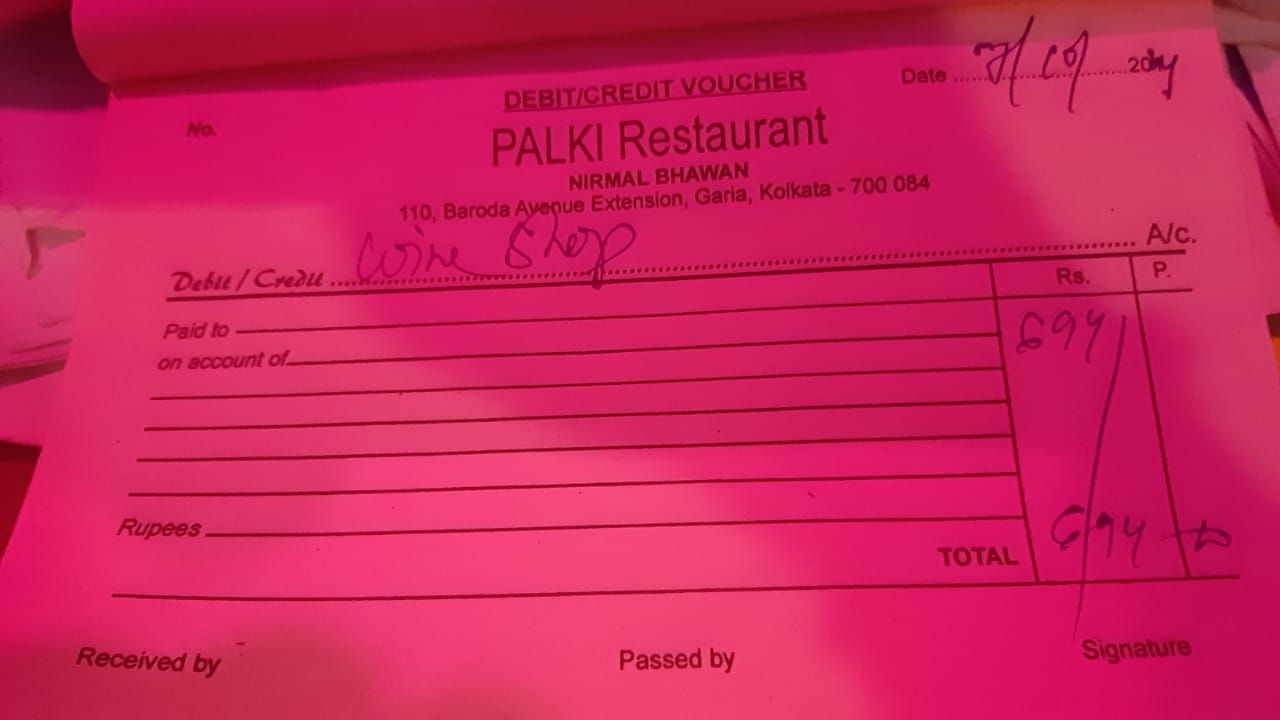 DEBIT/CREDIT VOUCHER
Date ..................... 20
No.
PALKI Restaurant
NIRMAL BHAWAN
110, Baroda Avenue Extension, Garia, Kolkata - 700 084
Debit / Credit ..... Wine Shop ..... A/c.
Rs. P.
Paid to
694/
on account of
Rupees
TOTAL 694
Received by Passed by Signature